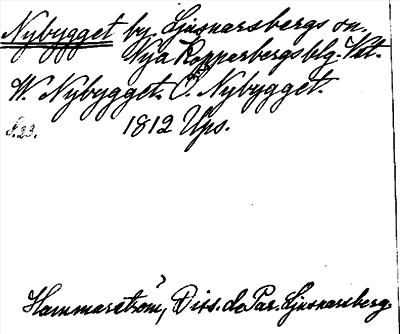 Nybygget by Ljusnarsbergs sn.
Nya Kopparbergs blg. Vst.
W. Nybygget. Ö. Nybygget.
S. 23. 1812 Ups.
Hammarström, Diss. de Par. Ljusnarsberg.